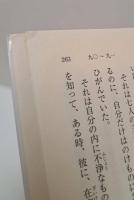 九〇～九一
それは七人
るのに、自分だけはのけもの
ひがんでいた。
それは自分の内に不浄なも
を知って、ある時、彼に、在